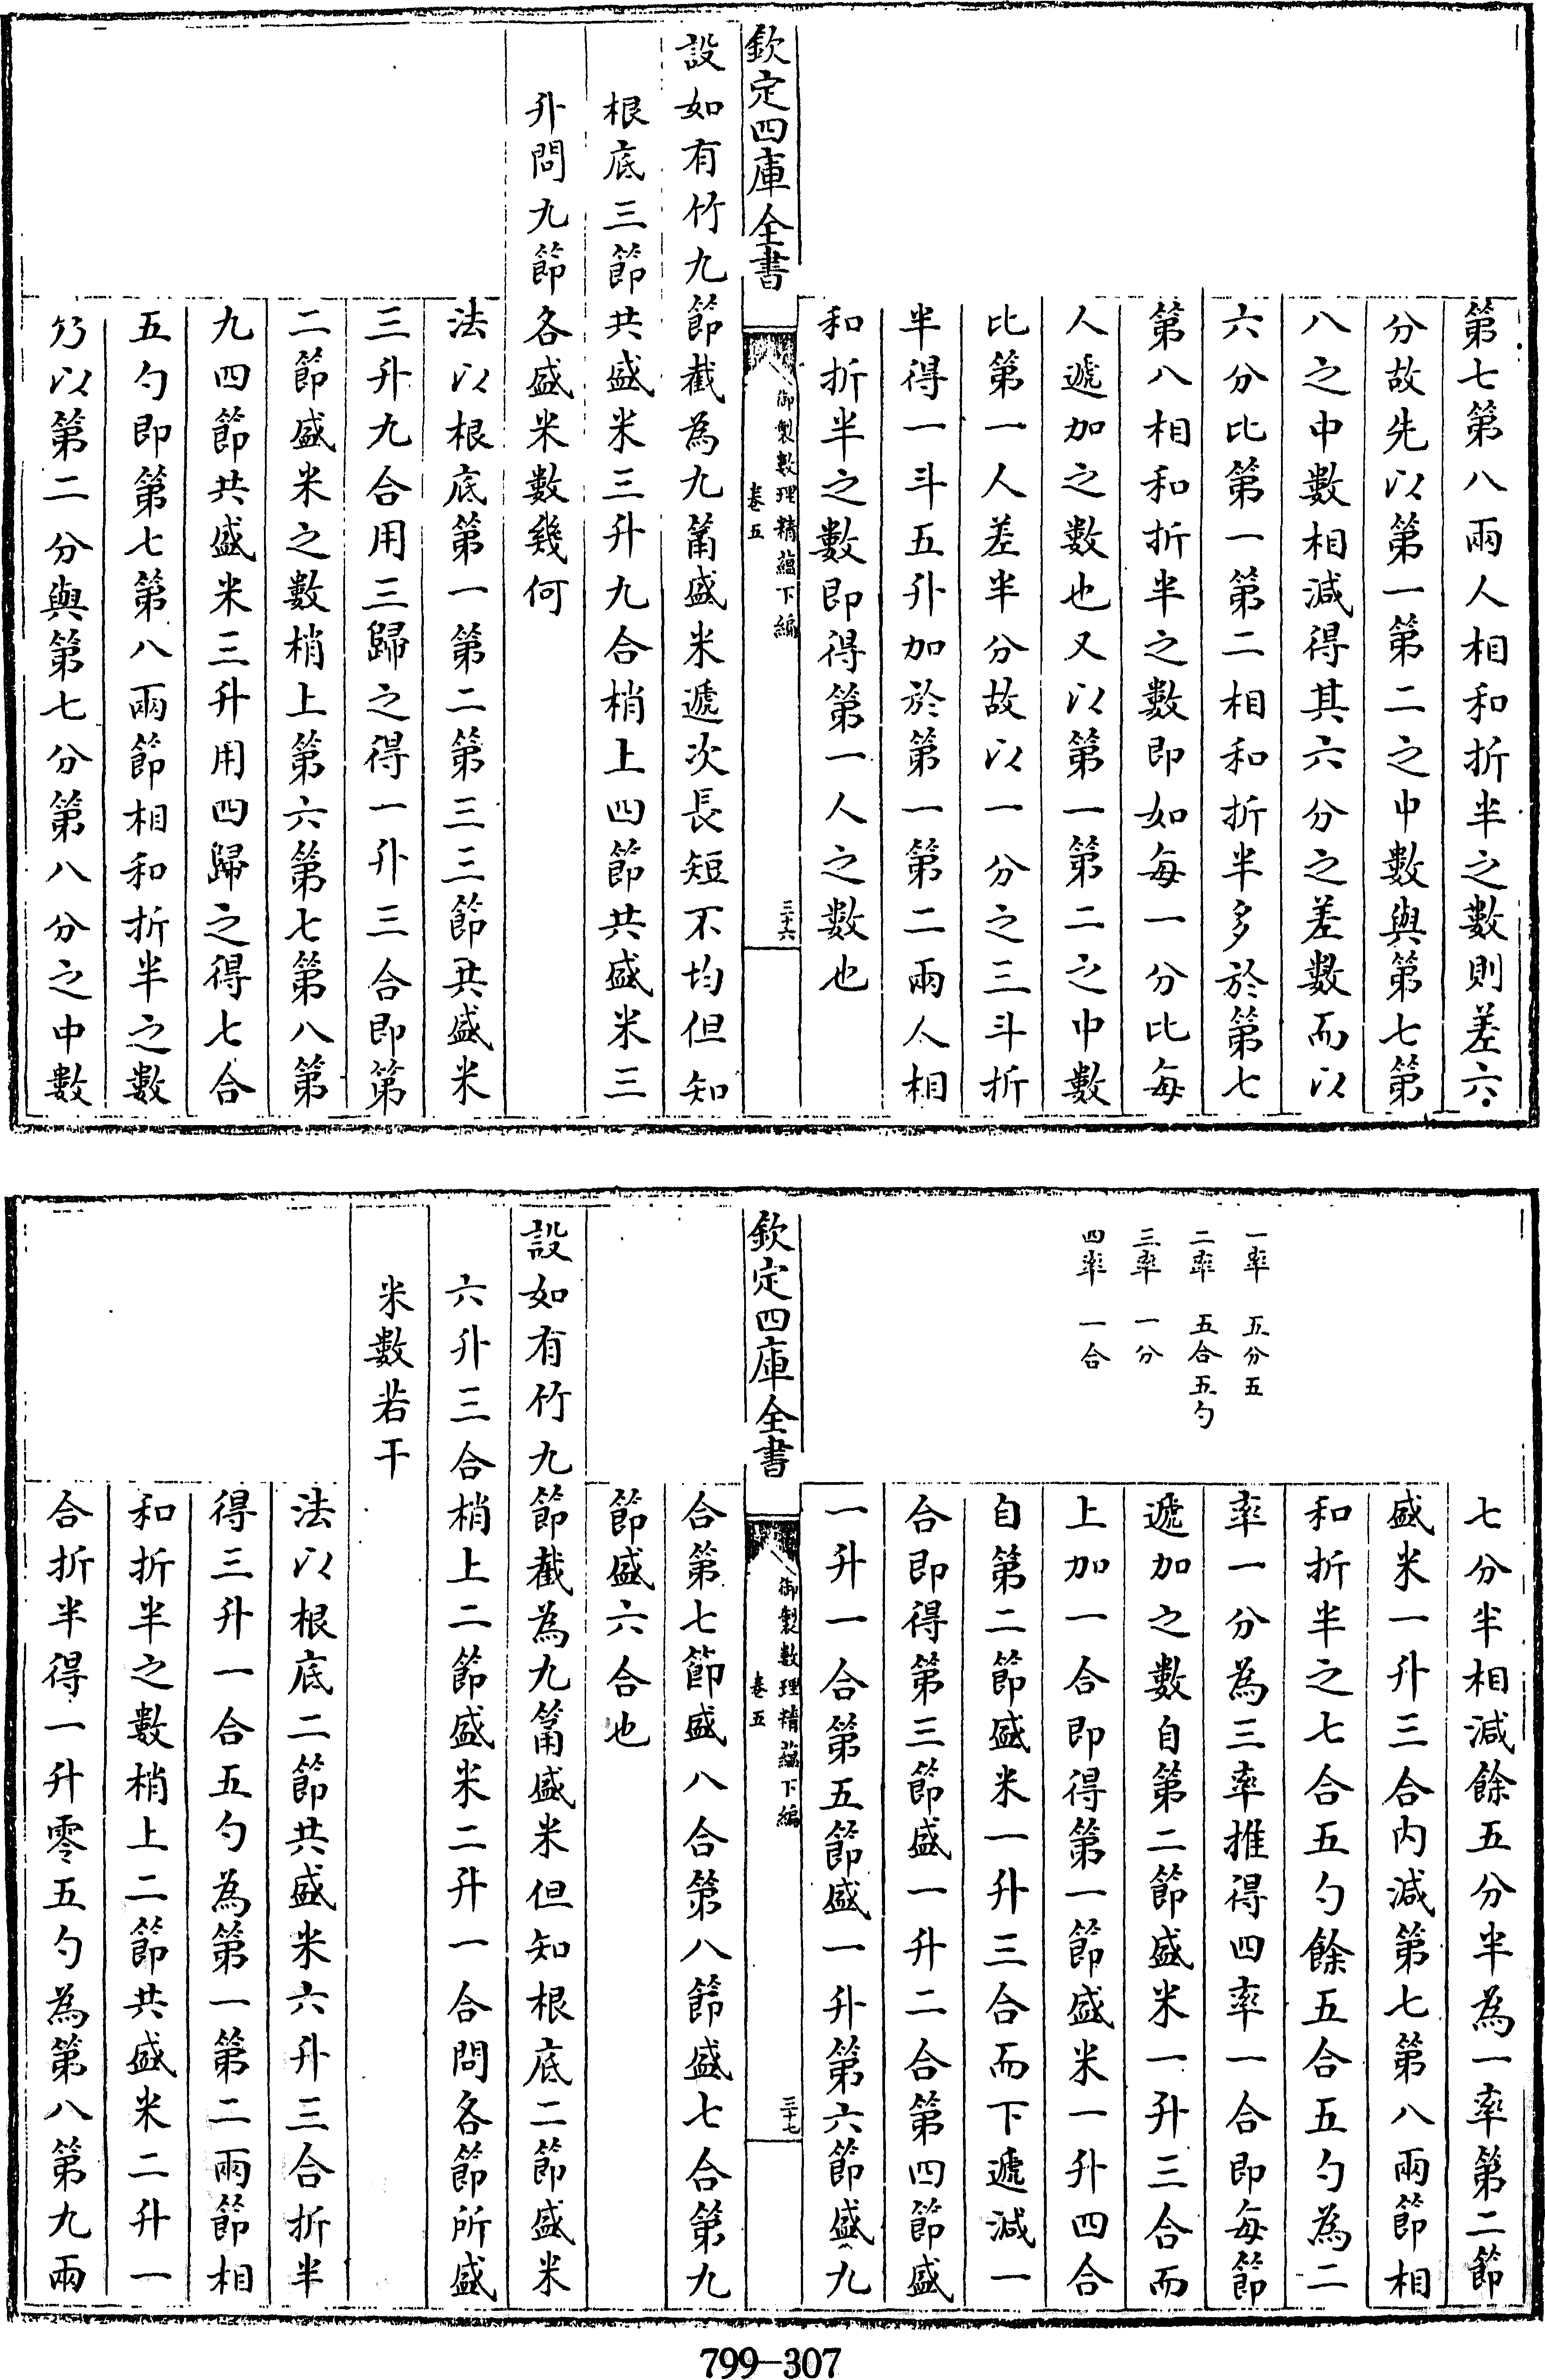 第七第八兩人相和折半之數則差六
分故先以第一第二之中數與第七第
八之中數相減得其六分之差數而以
六分比第一第二相和折半多於第七
第八相和折半之數即如每一分比每
人遞加之數也又以第一第二之中數
比第一人差半分故以一分之三斗折
半得一斗五升加於第一第二兩人相
和折半之數即得第一人之數也
欽定四庫全書
御製數理精蘊下編
卷五
三十六
設如有竹九節截為九筩盛米遞次長短不均但知
根底三節共盛米三升九合梢上四節共盛米三
升問九節各盛米數幾何
法以根底第一第二第三三節共盛米
三升九合用三歸之得一升三合即第
二節盛米之數梢上第六第七第八第
九四節共盛米三升用四歸之得七合
五勺即第七第八兩節相和折半之數
乃以第二分與第七分第八分之中數
一率 五分五
二率 五合五勺
三率 一分
四率 一合
七分半相減餘五分半為一率第二節
盛米一升三合內減第七第八兩節相
和折半之七合五勺餘五合五勺為二
率一分為三率推得四率一合即每節
遞加之數自第二節盛米一升三合而
上加一合即得第一節盛米一升四合
自第二節盛米一升三合而下遞減一
合即得第三節盛一升二合第四節盛
一升一合第五節盛一升第六節盛九
欽定四庫全書
御製數理精蘊下編
卷五
三十七
合第七節盛八合第八節盛七合第九
節盛六合也
設如有竹九節截為九筩盛米但知根底二節盛米
六升三合梢上二節盛米二升一合問各節所盛
米數若干
法以根底二節共盛米六升三合折半
得三升一合五勺為第一第二兩節相
和折半之數梢上二節共盛米二升一
合折半得一升零五勺為第八第九兩
799-307